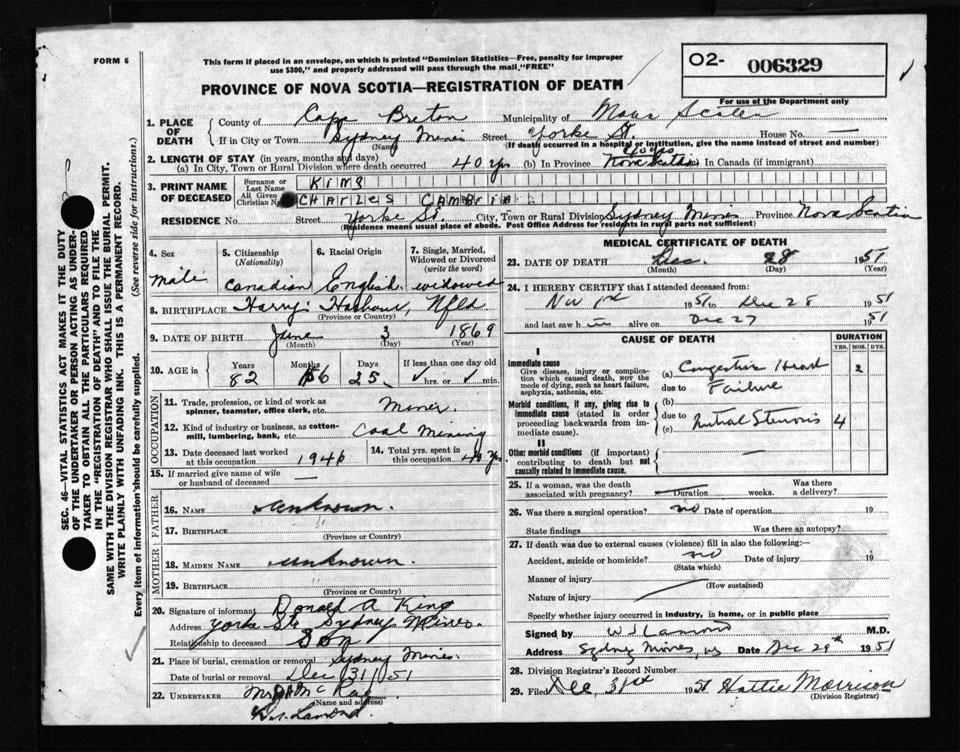 FORM 6
This form if placed in an envelope, on which is printed "Dominion Statistics—Free, penalty for improper
use $300," and properly addressed will pass through the mail, "FREE"
O2- 006329
PROVINCE OF NOVA SCOTIA—REGISTRATION OF DEATH
For use of the Department only
1. PLACE OF DEATH
County of Cape Breton Municipality of Nova Scotia
If in City or Town Sydney Mines Street Yorke St. House No. —
(Name) (If death occurred in a hospital or institution, give the name instead of street and number)
2. LENGTH OF STAY (in years, months and days)
(a) In City, Town or Rural Division where death occurred 40 yrs (b) In Province 40 yrs Nova Scotia In Canada (if immigrant)
3. PRINT NAME OF DECEASED
Surname or Last Name KING
All Given Christian Names CHARLES CAMBRIA
RESIDENCE No. Street Yorke St. City, Town or Rural Division Sydney Mines Province Nova Scotia
(Residence means usual place of abode. Post Office Address for residents in rural parts not sufficient)
4. Sex
Male
5. Citizenship (Nationality)
Canadian
6. Racial Origin
English
7. Single, Married, Widowed or Divorced (write the word)
widowed
8. BIRTHPLACE Harry's Harbour, Nfld
(Province or Country)
9. DATE OF BIRTH June 3 1869
(Month) (Day) (Year)
10. AGE in Years Months Days If less than one day old
82 6 25 hrs. or min.
OCCUPATION
11. Trade, profession, or kind of work as
spinner, teamster, office clerk, etc. Miner.
12. Kind of industry or business, as cotton-
mill, lumbering, bank, etc. Coal Mining
13. Date deceased last worked at this occupation 1946
14. Total yrs. spent in this occupation 40 yrs
15. If married give name of wife
or husband of deceased
FATHER
16. NAME unknown.
17. BIRTHPLACE
(Province or Country)
MOTHER
18. MAIDEN NAME unknown.
19. BIRTHPLACE
(Province or Country)
20. Signature of informant Donald A King
Address Yorke St. Sydney Mines.
Relationship to deceased Son
21. Place of burial, cremation or removal Sydney Mines.
Date of burial or removal Dec 31/51
22. UNDERTAKER McRae
(Name and address)
Lamond.
MEDICAL CERTIFICATE OF DEATH
23. DATE OF DEATH Dec. 28 1951
(Month) (Day) (Year)
24. I HEREBY CERTIFY that I attended deceased from:
Nov 1951 to Dec 28 1951
and last saw him alive on Dec 27 1951
CAUSE OF DEATH
DURATION
YRS. MOS. DYS.
I
Immediate cause
Give disease, injury or complica-
tion which caused death, NOT the
mode of dying, such as heart failure,
asphyxia, asthenia, etc.
(a) Congestive Heart 2
due to Failure
Morbid conditions, if any, giving rise to
immediate cause (stated in order
proceeding backwards from im-
mediate cause).
(b)
due to
(c) Mitral Stenosis 4
II
Other morbid conditions (if important)
contributing to death but not
causally related to immediate cause. —
25. If a woman, was the death
associated with pregnancy? — Duration weeks. Was there a delivery?
26. Was there a surgical operation? no Date of operation 19
State findings Was there an autopsy?
27. If death was due to external causes (violence) fill in also the following:—
Accident, suicide or homicide? no Date of injury 19
(State which)
Manner of injury
(How sustained)
Nature of injury
Specify whether injury occurred in industry, in home, or in public place
Signed by W S Lamond M.D.
Address Sydney Mines, NS Date Dec 29th 1951
28. Division Registrar's Record Number
29. Filed Dec 31st 1951 Hattie Morrison
(Division Registrar)
SEC. 46—VITAL STATISTICS ACT MAKES IT THE DUTY
OF THE UNDERTAKER OR PERSON ACTING AS UNDER-
TAKER TO OBTAIN ALL THE PARTICULARS REQUIRED
IN THE "REGISTRATION OF DEATH" AND TO FILE THE
SAME WITH THE DIVISION REGISTRAR WHO SHALL ISSUE THE BURIAL PERMIT.
WRITE PLAINLY WITH UNFADING INK. THIS IS A PERMANENT RECORD.
Every item of information should be carefully supplied. (See reverse side for instructions.)